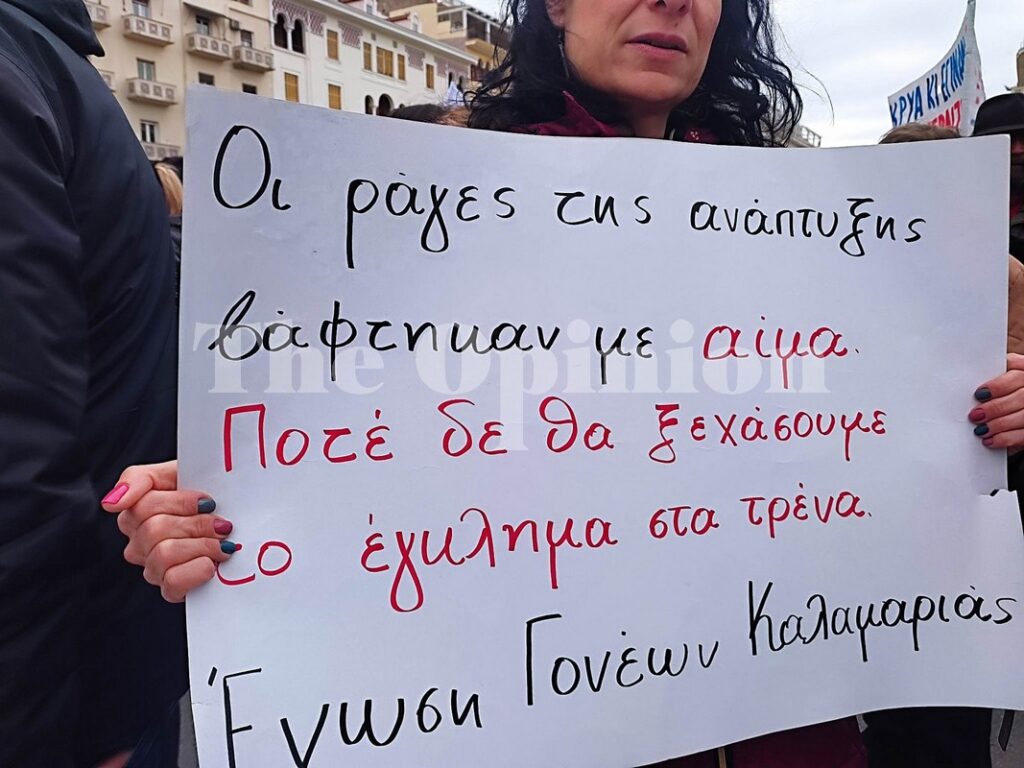 Οι ράγες της ανάπτυξης
βάφτηκαν με αίμα.
Ποτέ δε θα ξεχάσουμε
το έγκλημα στα τρένα.
Ένωση Γονέων Καλαμαριάς
The Opinion